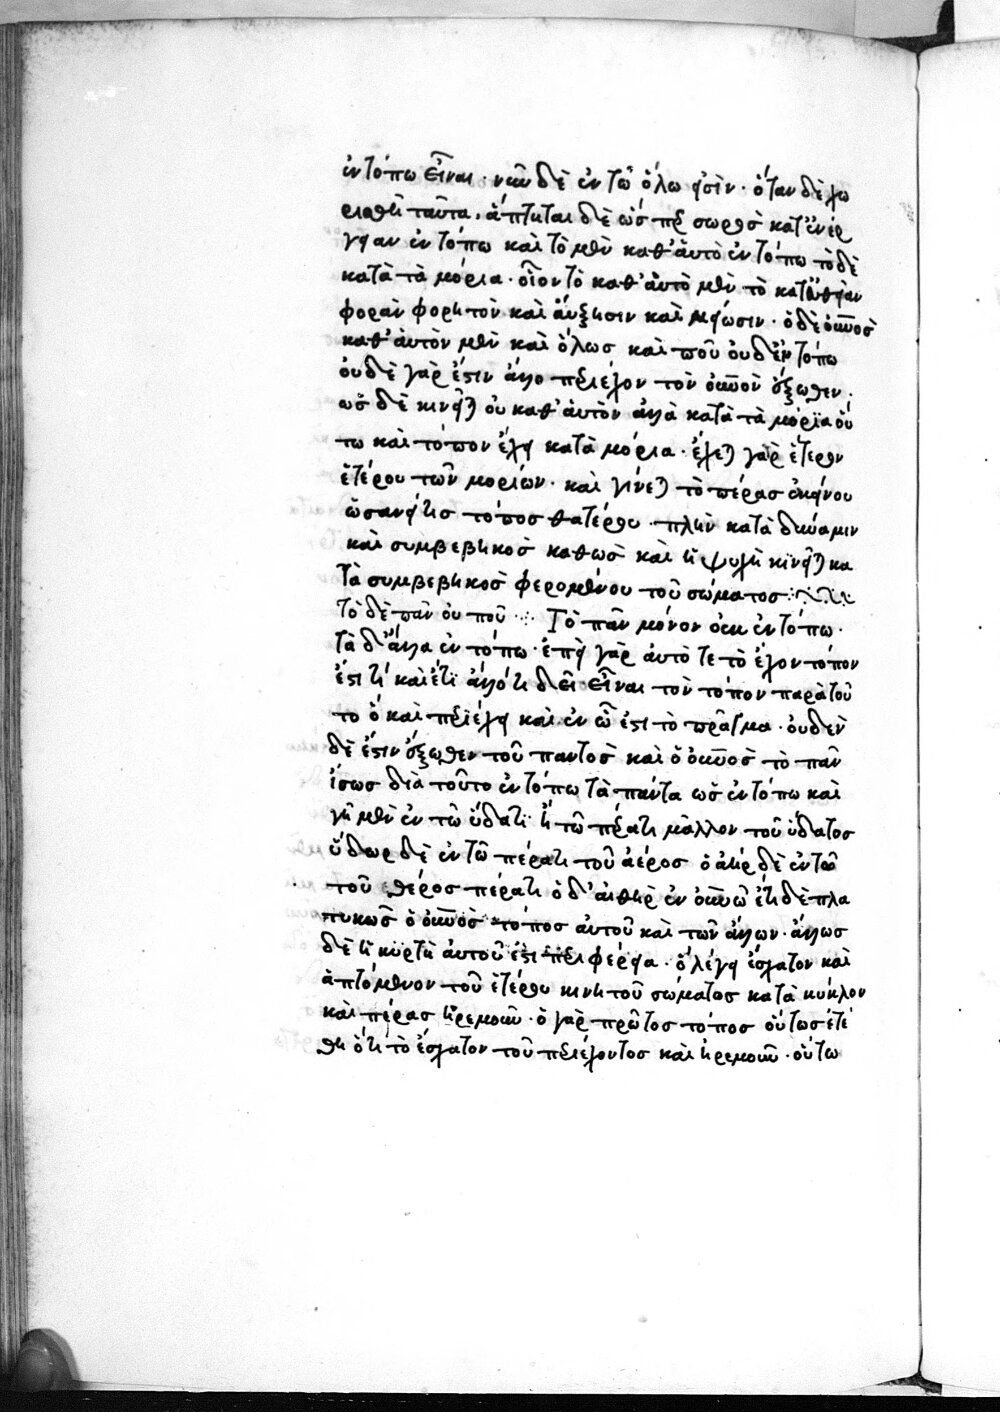 ἐν τόπω εἶναι · νῦν δὲ ἐν τῶ ὅλω φησὶν · ὅταν δὲ χω
ρισθῆ ταῦτα, ἅπτηται δὲ ὡσ περ σωρὸσ κατ' ἐνέρ
γειαν ἐν τόπω καὶ τὸ μὲν καθ' ἁυτὸ ἐν τόπω τὸ δὲ
κατὰ τὰ μόρια · οἷον τὸ καθ' ἁυτὸ μὲν τὸ κατ' ευθεῖαν
φορὰν φορητὸν καὶ ἄυξησιν καὶ μείωσιν · ὁ δὲ οὐνοσ
καθ' ἁυτὸν μὲν καὶ ὅλωσ καὶ ποῦ ὀυδ' ἐν τόπω
ὀυδὲ γὰρ ἔστιν ἄλλο περιέχον τὸν οὐνον ἔξωθεν ·
ὡσ δὲ κινεῖται ὀυ καθ' ἁυτὸν ἀλλὰ κατὰ τὰ μόρια ὅυ
τω καὶ τόπον ἔχει κατὰ μόρια · ἔχεται γὰρ ἕτερον
ἑτέρου τῶν μορίων · καὶ γίνεται τὸ πέρασ ἐκείνου
ὡσανεί τισ τόποσ θατέρου · πλὴν κατὰ δύναμιν
καὶ συμβεβηκὸσ καθὼσ καὶ ἡ ψυχὴ κινεῖται κα
τὰ συμβεβηκὸσ φερομένου τοῦ σώματοσ
τὸ δὲ πᾶν ὀυ ποῦ Τὸ πᾶν μόνον ὀυκ ἐν τόπω ·
τὰ δ' ἄλλα ἐν τόπω · ἐπεὶ γὰρ ἀυτό τε τὸ ἔχον τόπον
ἐστί τι καὶ ἔτι ἄλλό τι δεῖ εἶναι τὸν τόπον παρὰ τοῦ
το ὃ καὶ περιέχει καὶ ἐν ὧ ἐστι τὸ πρᾶγμα · ὀυδὲν
δέ ἐστιν ἔξωθεν τοῦ παντὸσ καὶ ὁ οὐνοσ τὸ πᾶν
ἴσωσ διὰ τοῦτο ἐν τόπω τὰ πάντα ὡσ ἐν τόπω καὶ
γῆ μὲν ἐν τῶ ὕδατι ἢ τῶ πέρατι μᾶλλον τοῦ ὕδατοσ
ὕδωρ δὲ ἐν τῶ πέρατι τοῦ ἀέροσ ὁ ἀὴρ δὲ ἐν τῶ
τοῦ θέροσ πέρατι ὁ δ' ἀιθὴρ ἐν οὐνῶ ἔτι δὲ πλα
τυκῶσ ὁ οὐνὸσ τόποσ ἀυτοῦ καὶ τῶν ἄλλων · ἄλλωσ
δὲ ἡ κυρτὴ ἀυτοῦ ἐστι περιφέρεια · ὃ λέγει ἔσχατον καὶ
ἁπτόμενον τοῦ ἑτέρου κινητοῦ σώματοσ κατὰ κύκλον
καὶ πέρασ ἠρεμοῦν · ὁ γὰρ πρῶτοσ τόποσ ὅυτωσ ἐτέ
θη ὅτι τὸ ἔσχατον τοῦ περιέχοντοσ καὶ ἠρεμοῦν · ὅυτω